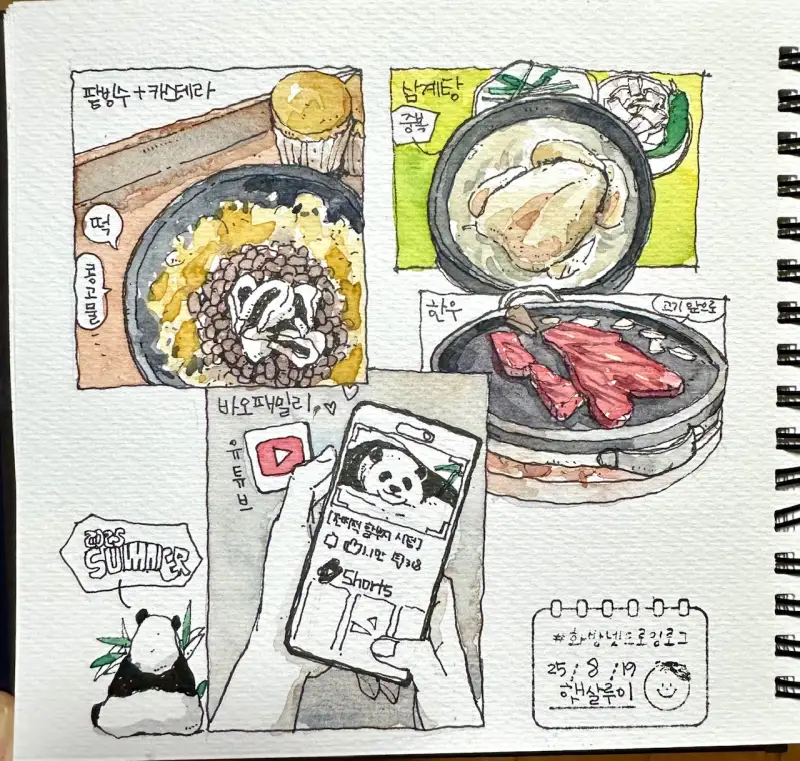 팥빙수+카스테라
떡
콩고물
삼계탕
중복
한우
고기 앞으로
바오패밀리
유튜브
[전지적 할부지 시점]
1.1만 318
Shorts
2025
SUMMER
#화방넷드로잉로그
25 / 8 / 19
햇살루이